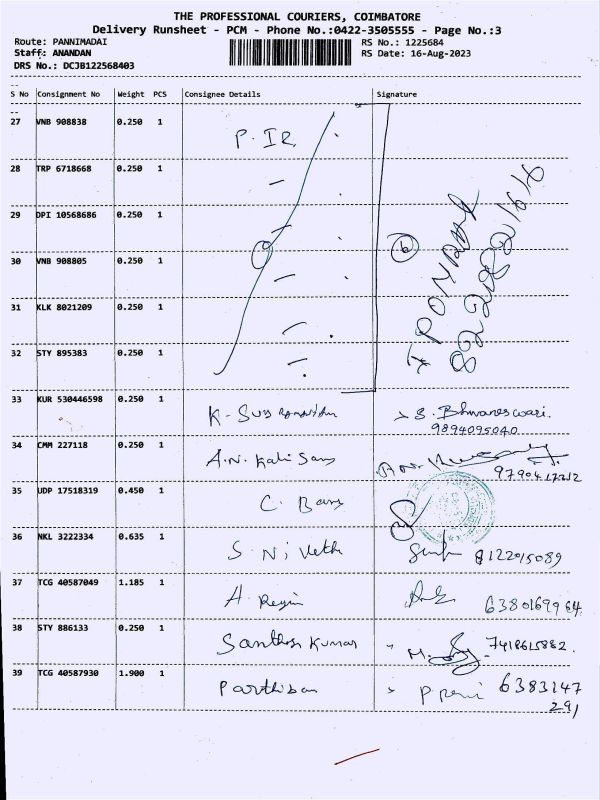 THE PROFESSIONAL COURIERS, COIMBATORE
Delivery Runsheet - PCM - Phone No.:0422-3505555 - Page No.:3
Route: PANNIMADAI RS No.: 1225684
Staff: ANANDAN RS Date: 16-Aug-2023
DRS No.: DCJB122568403
S No Consignment No Weight PCS Consignee Details Signature
27 VNB 908838 0.250 1 P. IR
28 TRP 6718668 0.250 1
29 DPI 10568686 0.250 1
30 VNB 908805 0.250 1 6
31 KLK 8021209 0.250 1
32 STY 895383 0.250 1
33 KUR 530446598 0.250 1 K- S. Bhuvaneswari.
9894095040
34 CMM 227118 0.250 1 A.N.
35 UDP 17518319 0.450 1 C.
36 NKL 3222334 0.635 1 S. Nivetha 8122015089
37 TCG 40587049 1.185 1 A. 6380169964
38 STY 886133 0.250 1 Santhosh Kumar 7418615882.
39 TCG 40587930 1.900 1 Parthiban 6383147
291